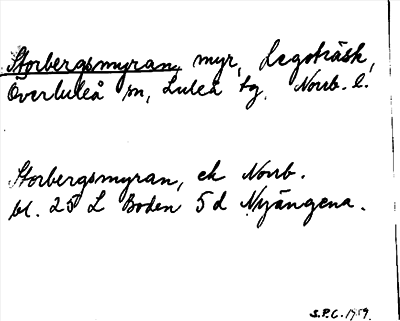 Storbergsmyran, myr, Legeträsk,
Överluleå sn, Luleå tg. Norrb. l.
Storbergsmyran, ek Norrb.
bl. 25 L Boden 5d Nyängena.
S.P.C. 1959.